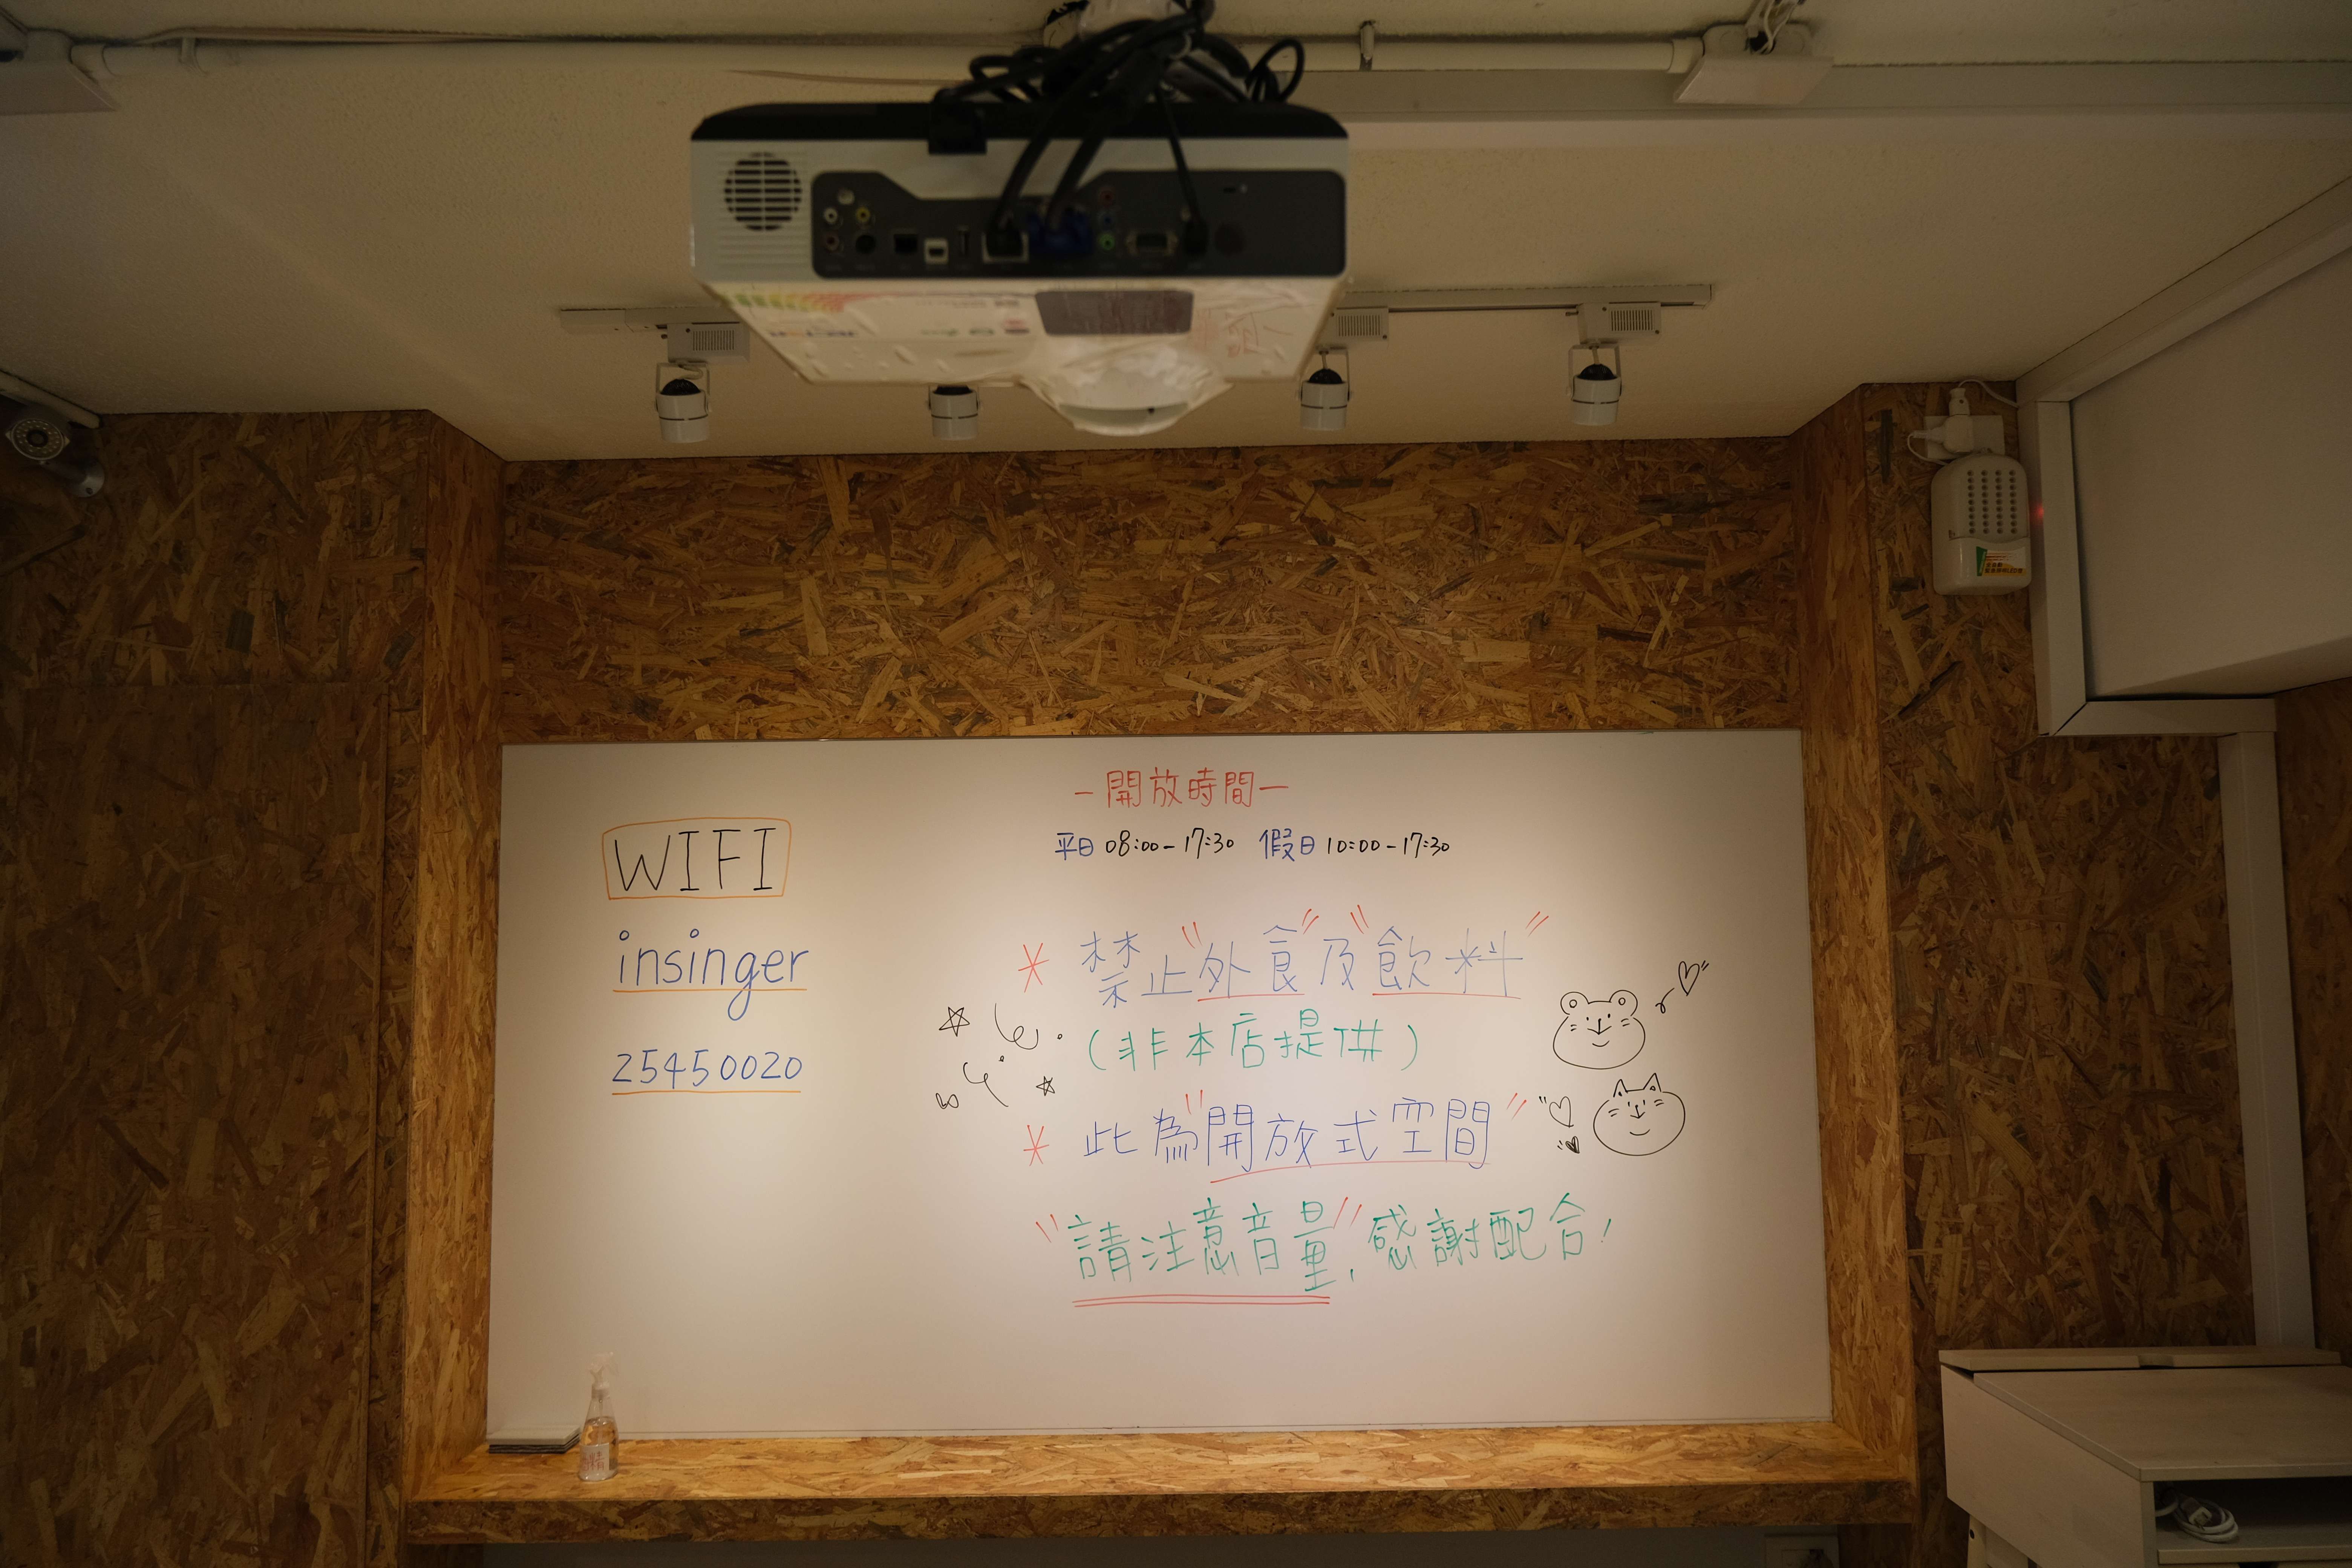 WIFI
insinger
25450020
-開放時間-
平日 08:00-17:30 假日 10:00-17:30
* 禁止"外食"及"飲料"
(非本店提供)
* 此為"開放式空間"
"請注意音量",感謝配合!